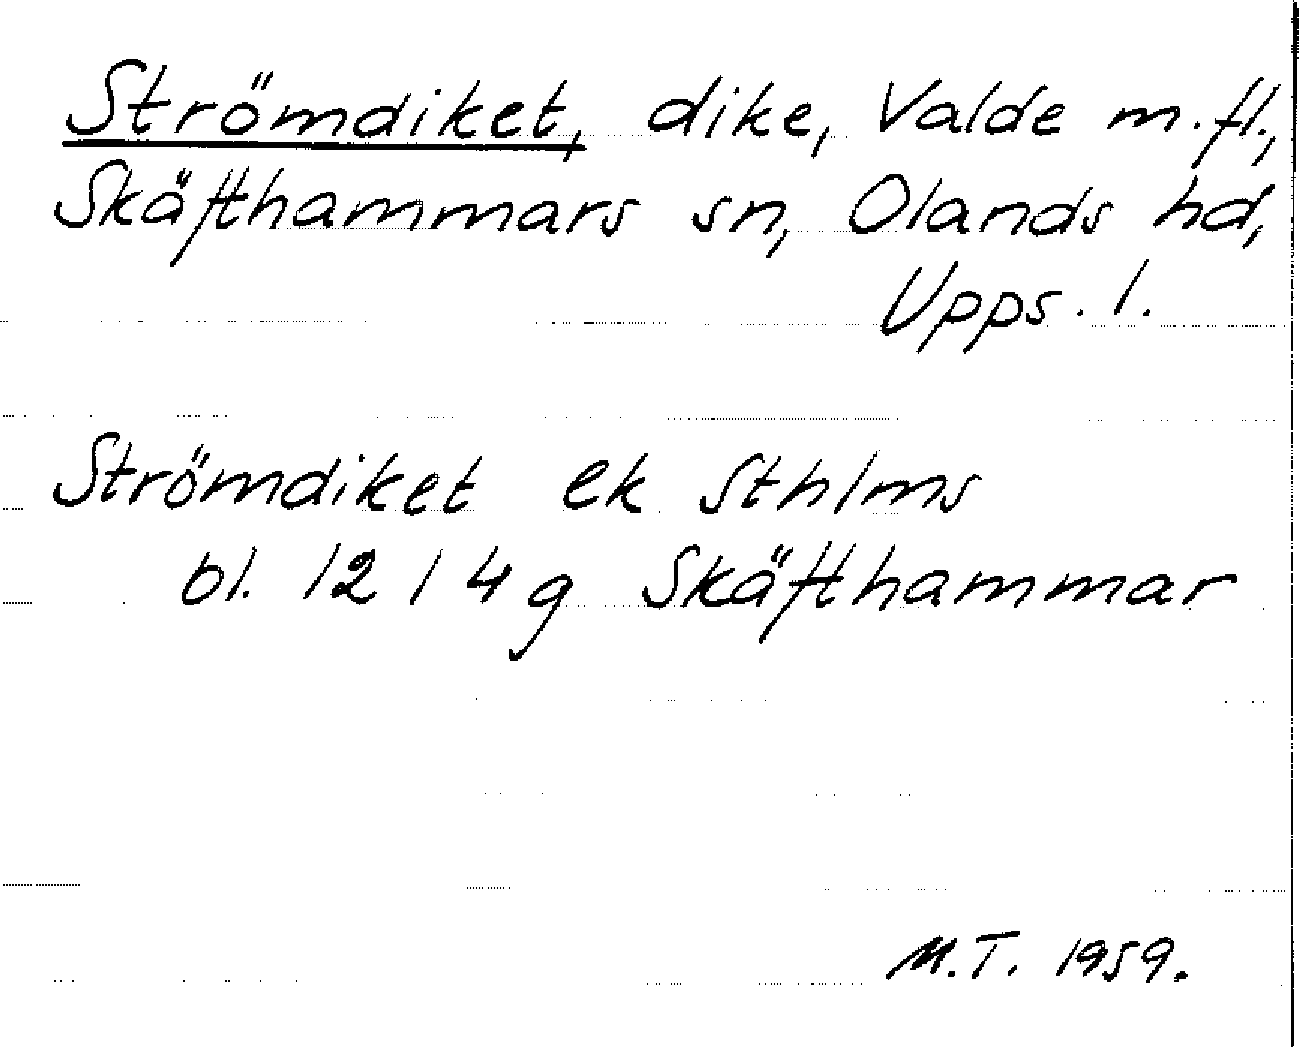 Strömdiket, dike, Valde m.fl.,
Skäfthammars sn, Olands hd,
Upps. l.
Strömdiket ek Sthlms
bl. 12 I 4g Skäfthammar
M.T. 1959.